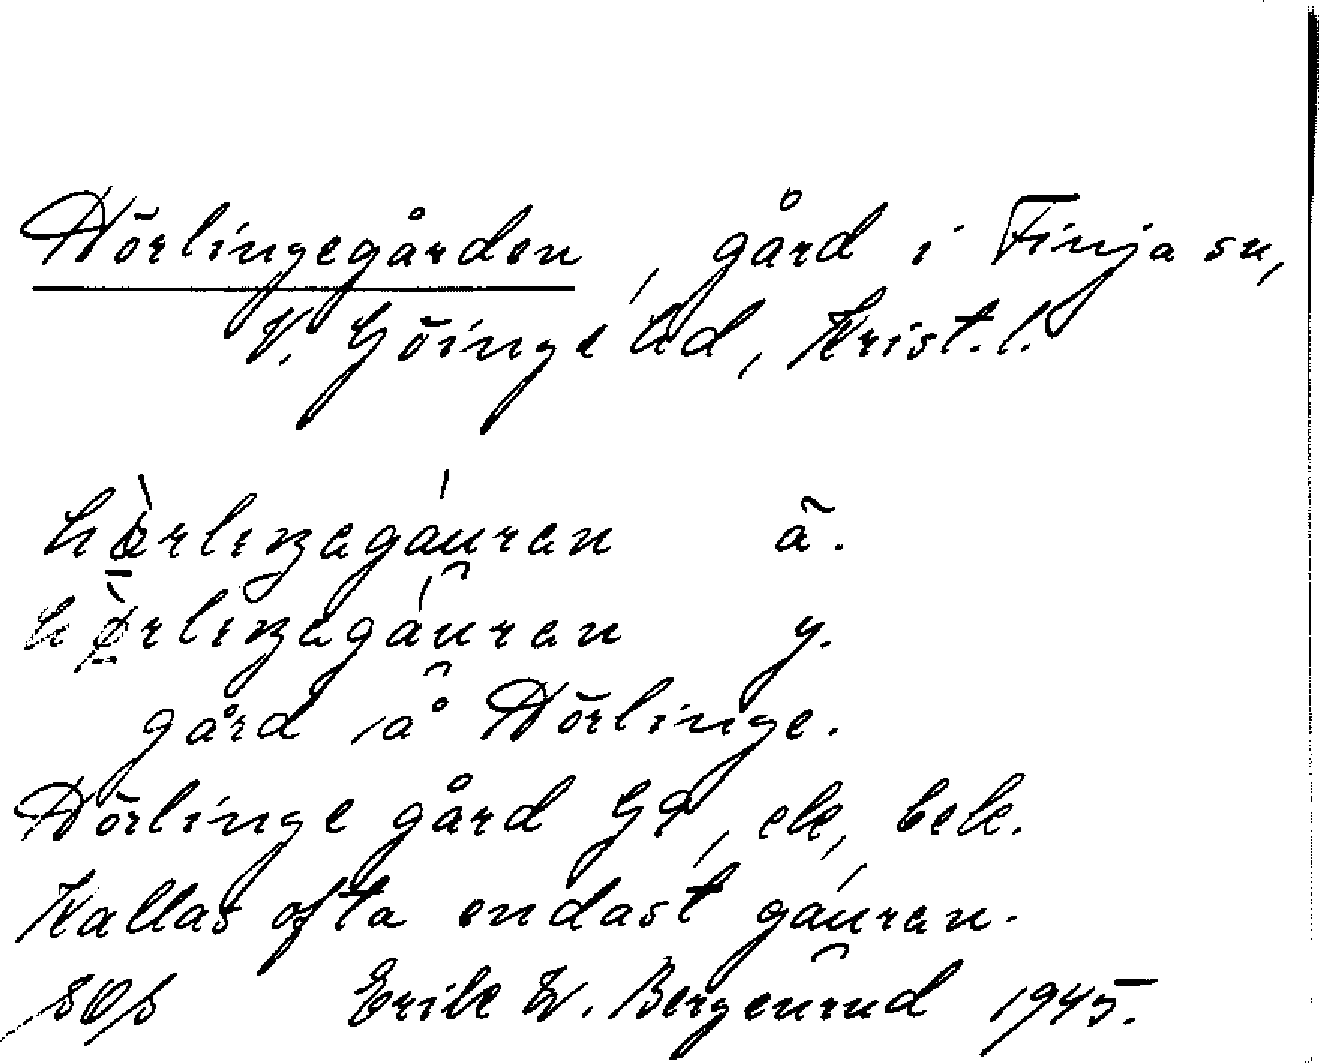 Hörlingegården, gård i Finja sn,
V. Göinge hd, Krist. l.
hø̀rlıŋagáu̯ran ã.
hø̀rlıŋagáu̯ran y.
gård å Hörlinge.
Hörlinge gård Gd, ek, bek.
Kallas ofta endast gáu̯ran.
Erik W. Bergenrud 1945.